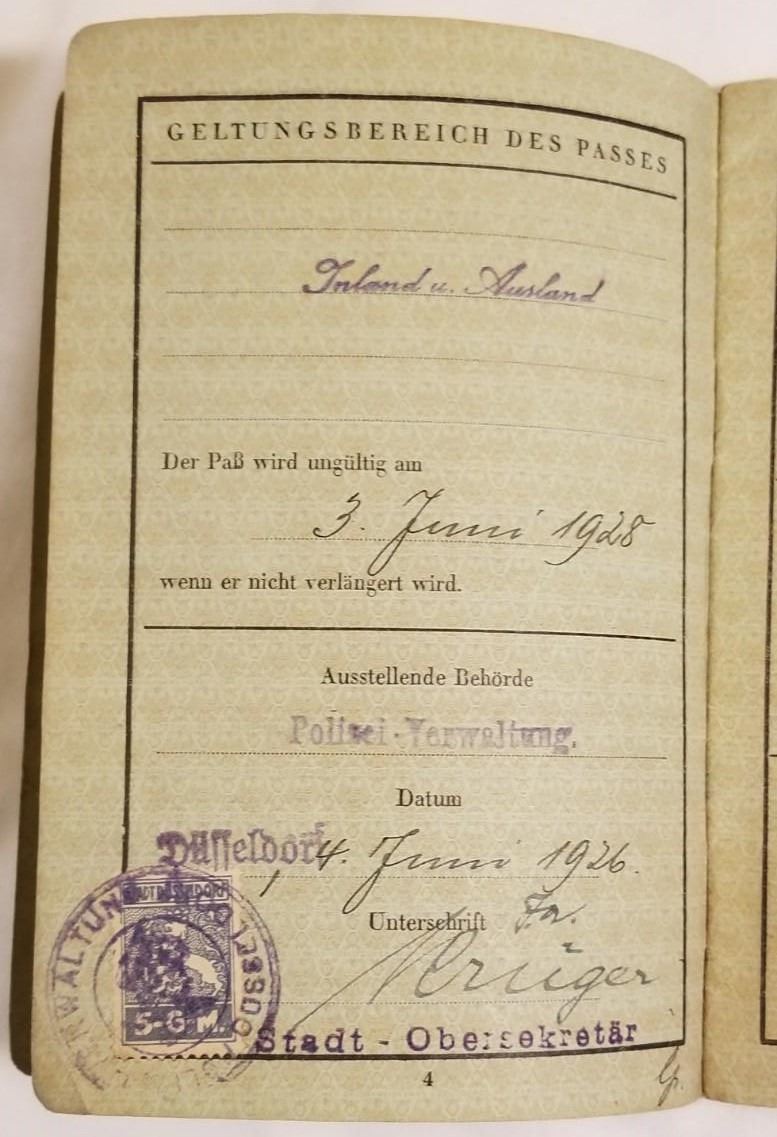 GELTUNGSBEREICH DES PASSES
Inland u. Ausland
Der Paß wird ungültig am
3. Juni 1928
wenn er nicht verlängert wird.
Ausstellende Behörde
Polizei-Verwaltung.
Datum
Düsseldorf, 4. Juni 1926.
Unterschrift
Krüger
Stadt - Obersekretär
STADT DÜSSELDORF
5-G M.
4